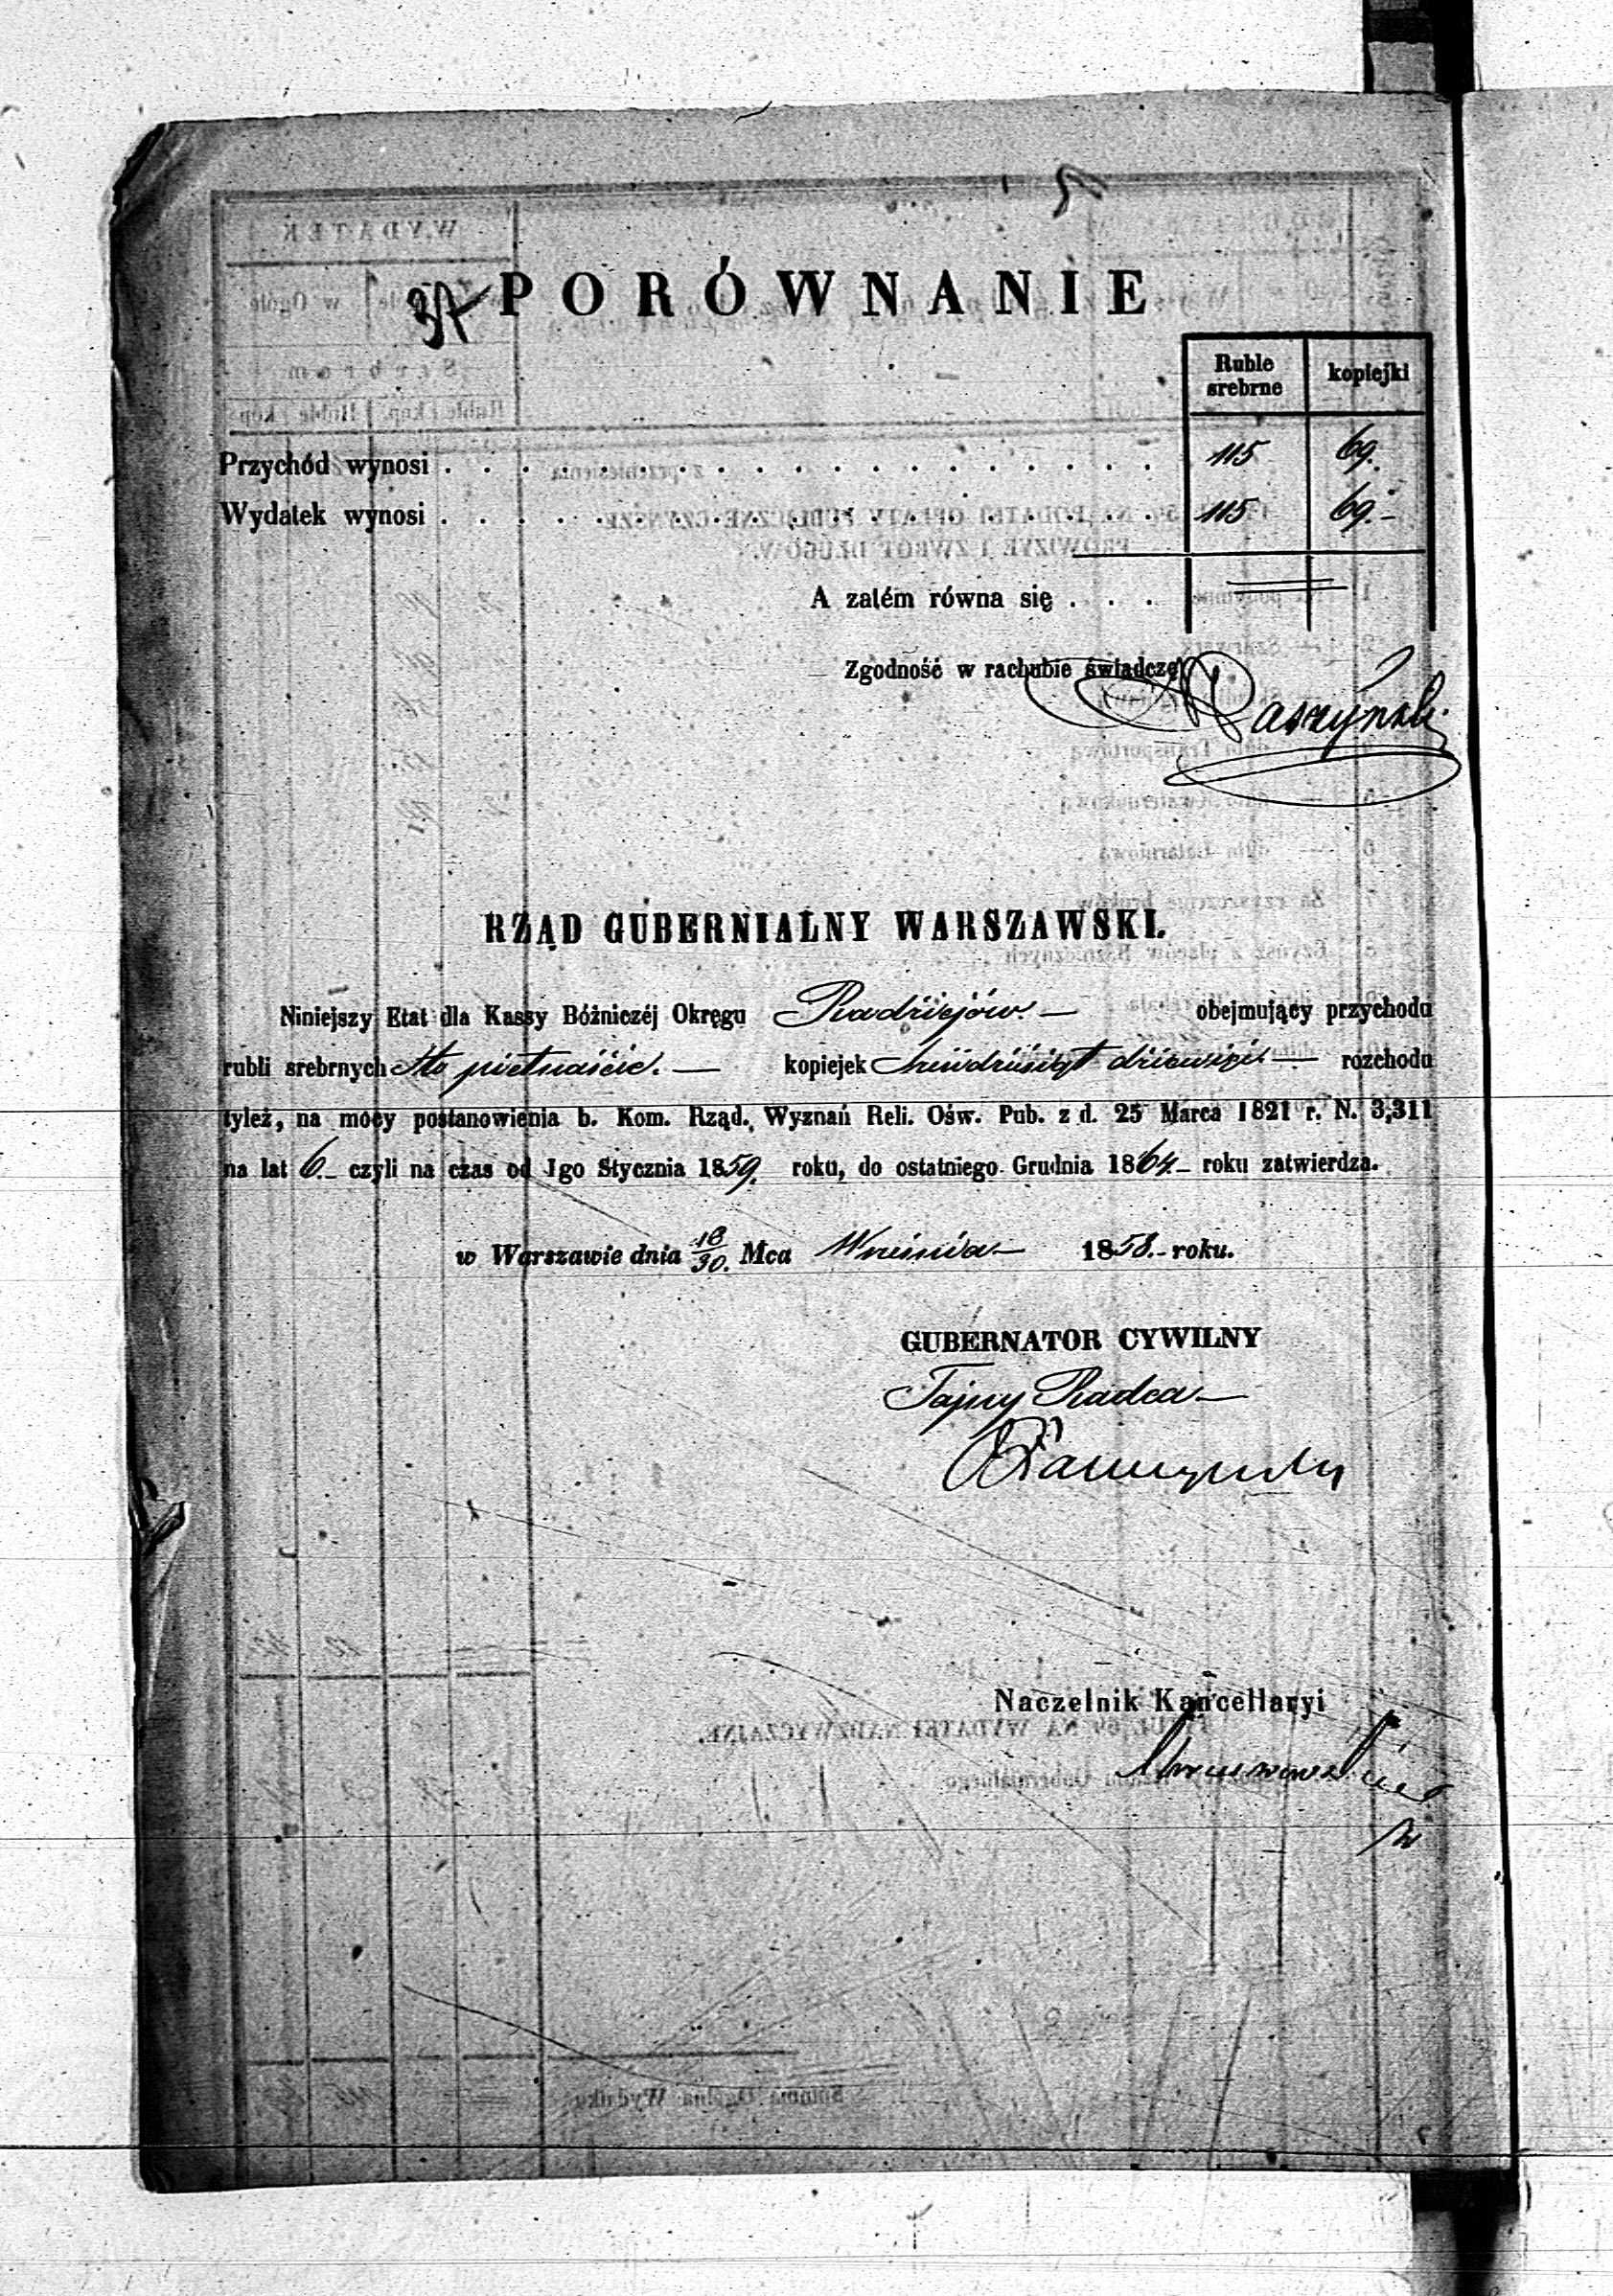 PORÓWNANIE
Ruble srebrne kopiejki
Przychód wynosi . . . . . . . . . . . . . . . . . . . 115 69.
Wydatek wynosi . . . . . . . . . . . . . . . . . . . 115 69.-
A zatém równa się . . .
Zgodność w rachubie świadczę
RZĄD GUBERNIALNY WARSZAWSKI.
Niniejszy Etat dla Kassy Bóżniczéj Okręgu Radziejów obejmujący przychodu
rubli srebrnych Sto pietnaście. — kopiejek sześdziesiąt dziewięć — rozchodu
tyleż, na mocy postanowienia b. Kom. Rząd. Wyznań Reli. Ośw. Pub. z d. 25 Marca 1821 r. N. 3,311
na lat 6.- czyli na czas od 1go Stycznia 1859. roku, do ostatniego Grudnia 1864.- roku zatwierdza.
w Warszawie dnia 18/30. Mca Września 1858.- roku.
GUBERNATOR CYWILNY
Tajny Radca
Naczelnik Kancellaryi